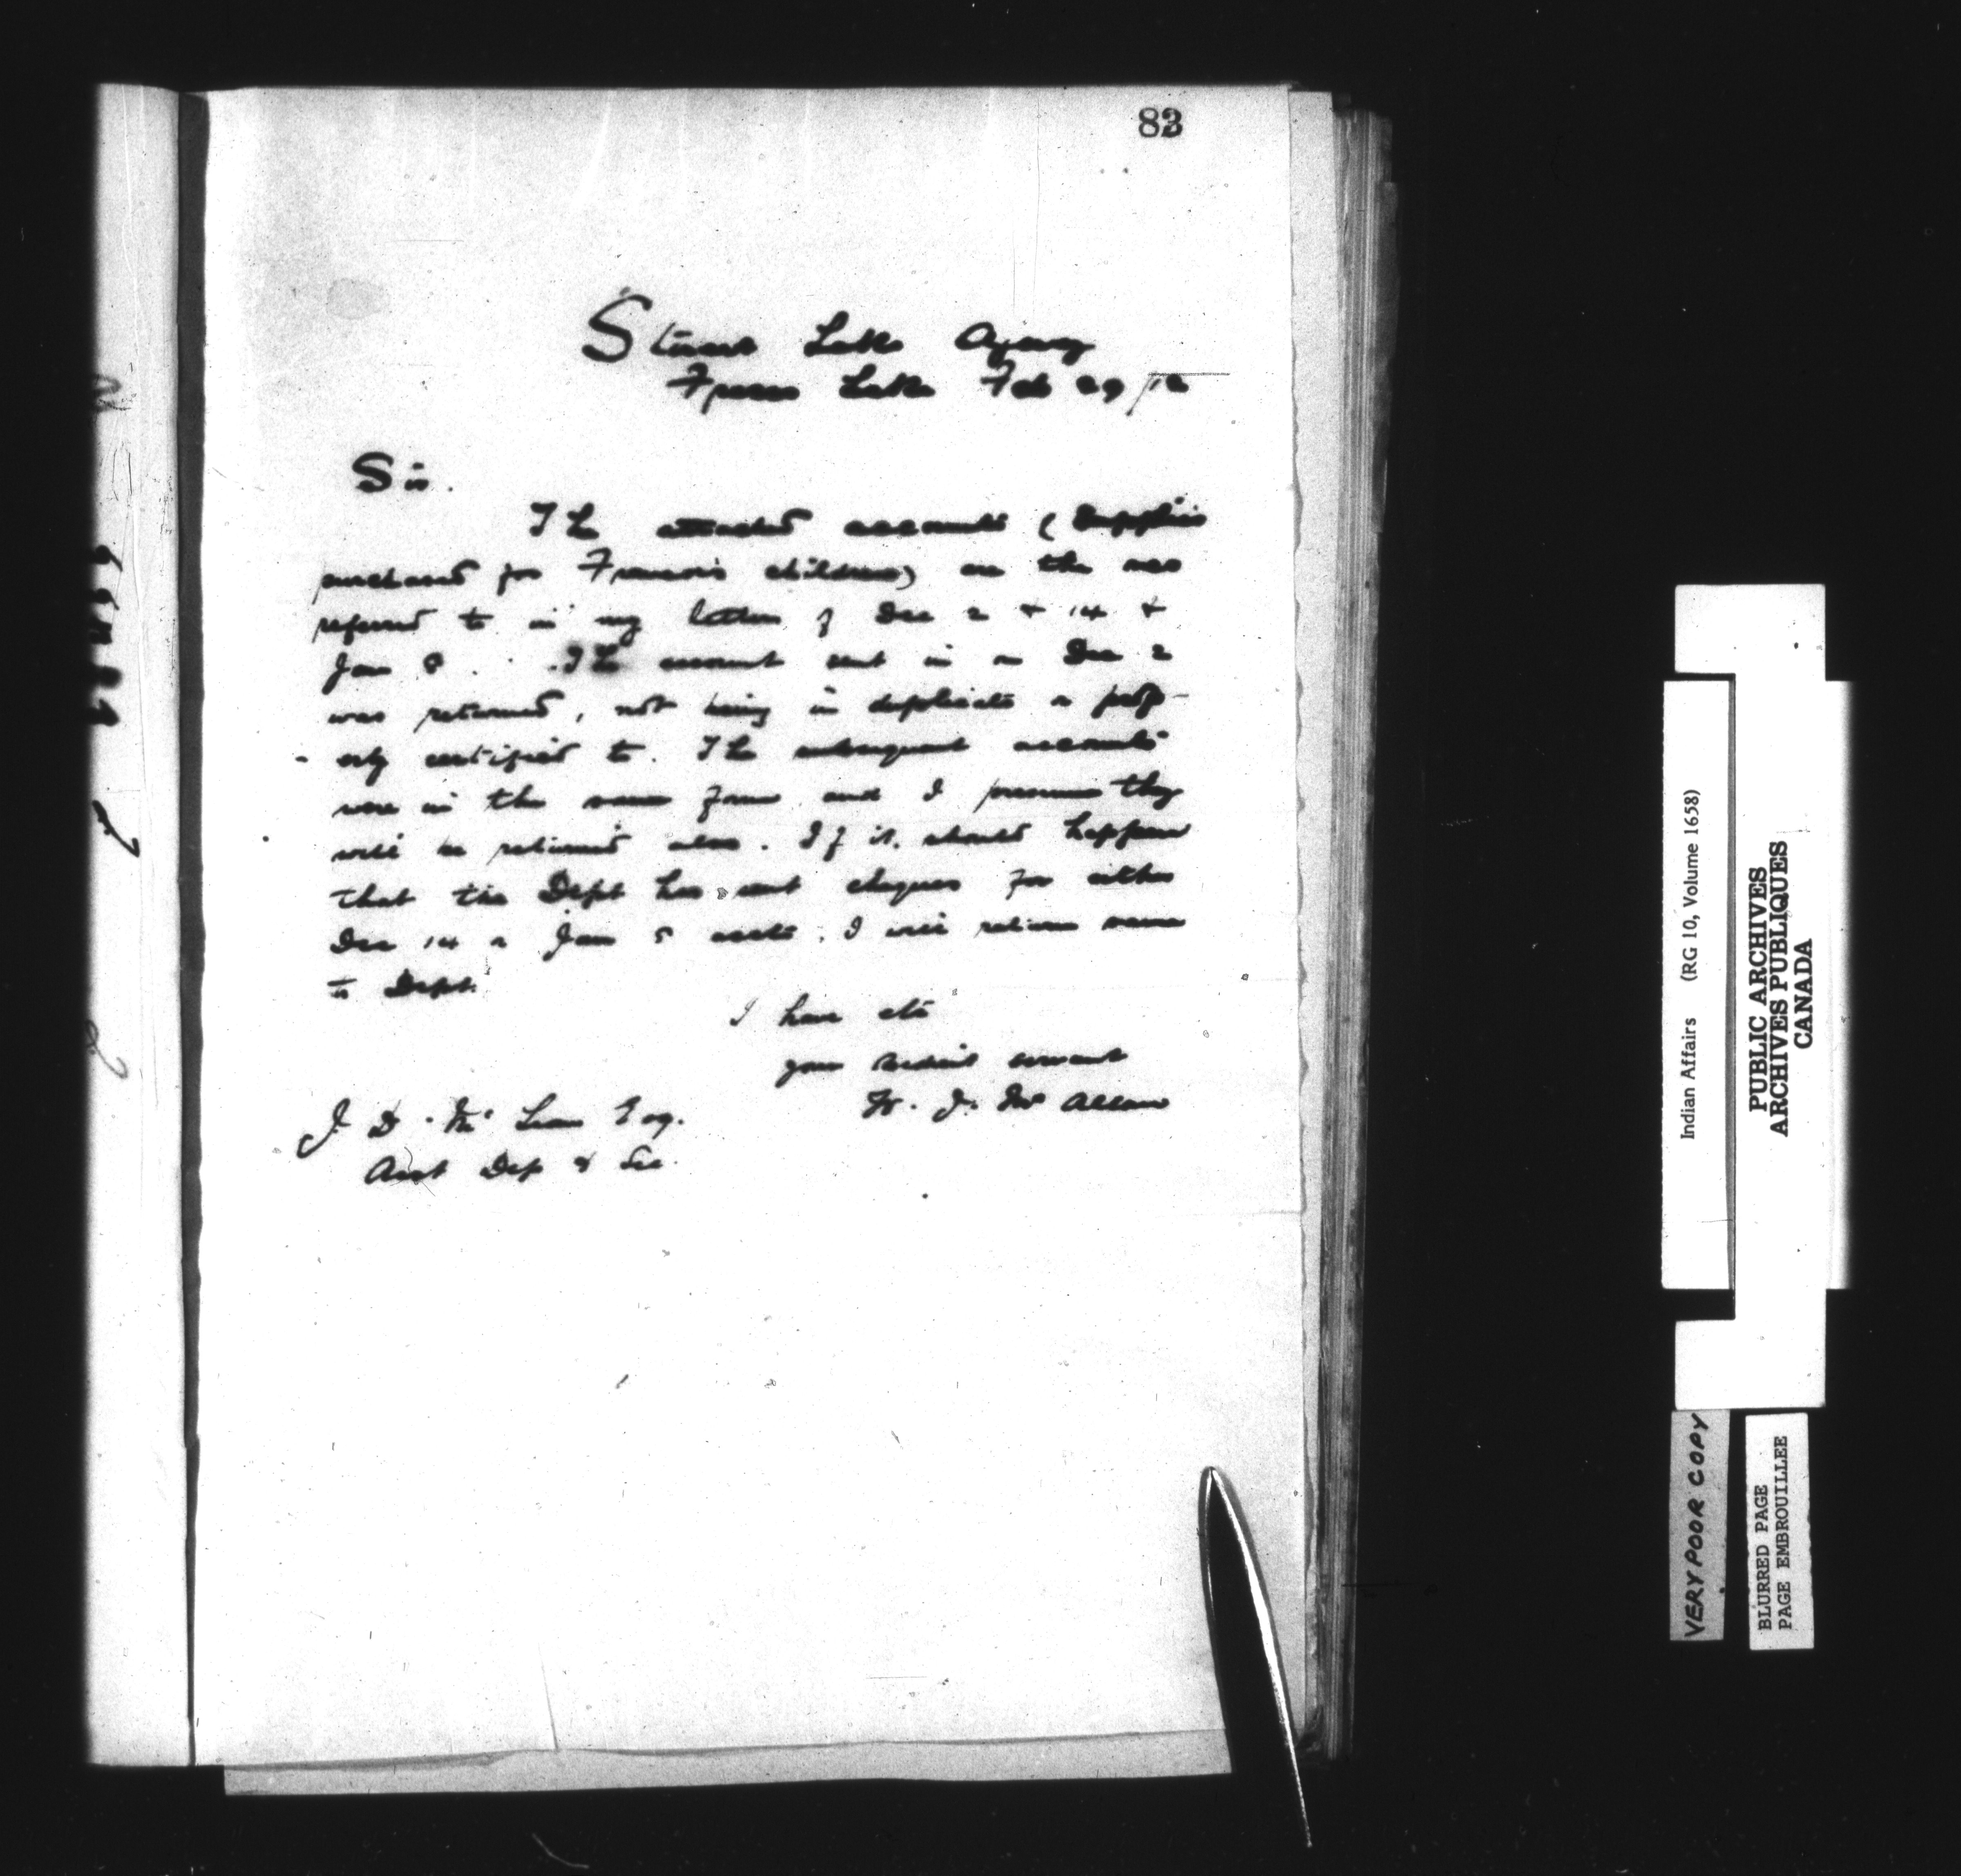 83
Stuart Lake Agency
Fraser Lake Feb 29/12
Sir.
The attached accounts (supplies
purchased for Francois children) are the ones
referred to in my letters of Dec 2 & 14 &
Jan 8. The account sent in on Dec 2
was returned, not being in duplicate or prop-
erly certified to. The subsequent accounts
were in the same form and I presume they
will be returned also. If it should happen
that the Dept has sent cheques for either
Dec 14 or Jan 5 accts, I will return same
to Dept.
I have etc
your obedient servant
W. J. McAllan
J. D. McLean Esq.
Asst Dep & Sec.
Indian Affairs (RG 10, Volume 1658)
PUBLIC ARCHIVES
ARCHIVES PUBLIQUES
CANADA
VERY POOR COPY
BLURRED PAGE
PAGE EMBROUILLEE